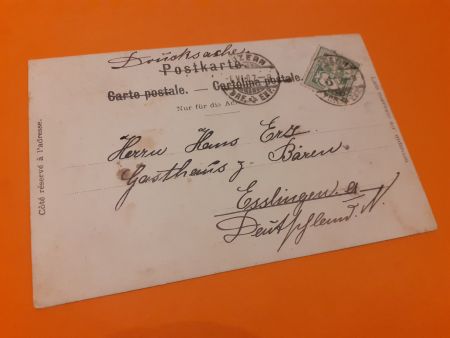 Drucksache
Postkarte
Carte postale. — Cartolina postale.
Nur für die
Herrn Hans Erz
Gasthaus z. Bären
Esslingen a.
Deutschland. N.
Côté réservé à l'adresse.
LUZERN
5